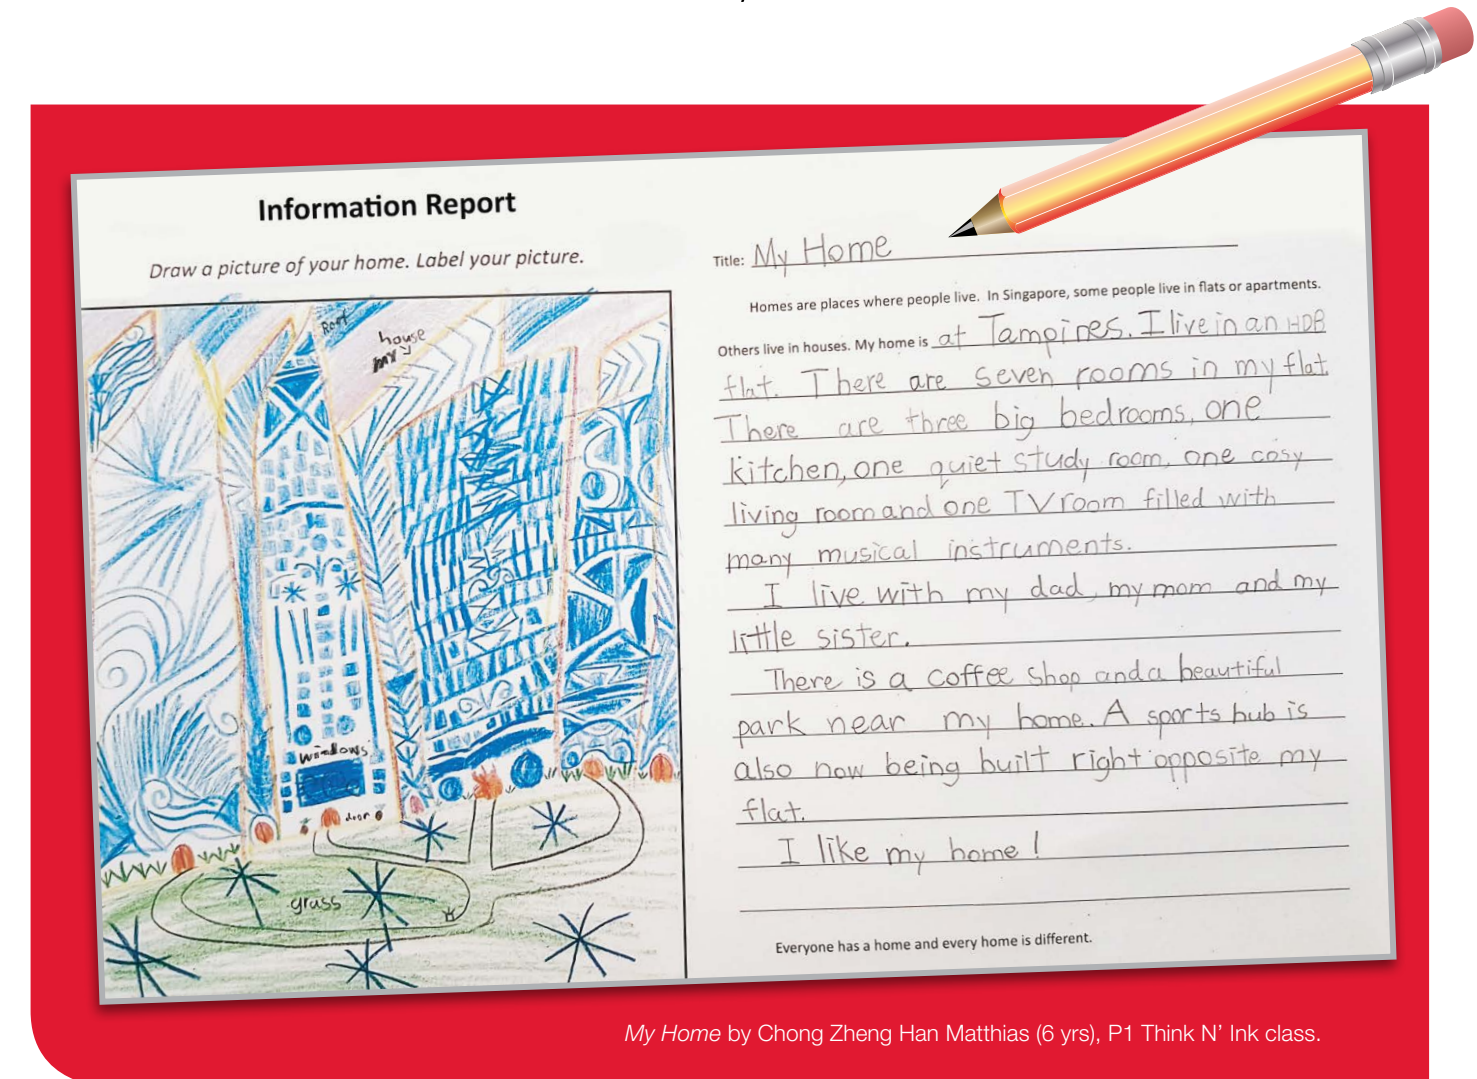 Information Report
Draw a picture of your home. Label your picture.
Roof
house
my
windows
door
grass
Title: My Home
Homes are places where people live. In Singapore, some people live in flats or apartments.
Others live in houses. My home is at Tampines. I live in an HDB
flat. There are seven rooms in my flat.
There are three big bedrooms, one
kitchen, one quiet study room, one cosy
living room and one TV room filled with
many musical instruments.
I live with my dad, my mom and my
little sister.
There is a coffee shop and a beautiful
park near my home. A sports hub is
also now being built right opposite my
flat.
I like my home!
Everyone has a home and every home is different.
My Home by Chong Zheng Han Matthias (6 yrs), P1 Think N' Ink class.